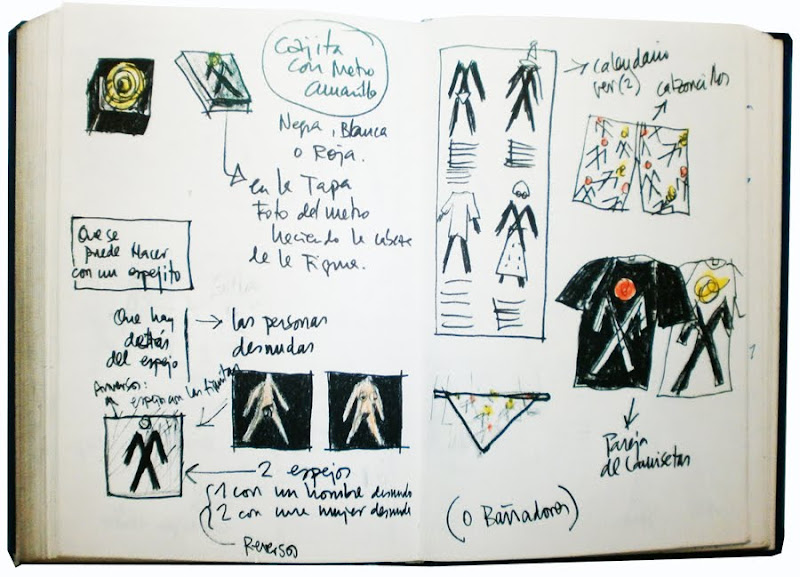 Cajita
con Metro
amarillo
Negra, Blanca
o Roja.
en la Tapa
Foto del metro
haciendo la cabeza
de la Figura.
Que se
puede Hacer
con un espejito
Que hay
detrás
del espejo
las personas
desnudas
Anversos:
espejo con las figuritas
2 espejos
1 con un hombre desnudo
2 con una mujer desnuda
Reversos
calendario
ver (2)
calzoncillos
Pareja
de Camisetas
(o Bañadores)